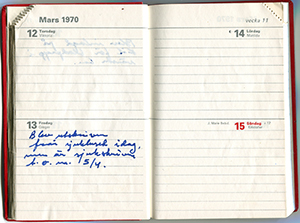 Mars 1970
vecka 11
12 Torsdag
Viktoria
14 Lördag
Matilda
13 Fredag
Blev utskriven
från sjukhuset idag,
men är sjukskriven
t.o.m. 5/4.
15 Söndag